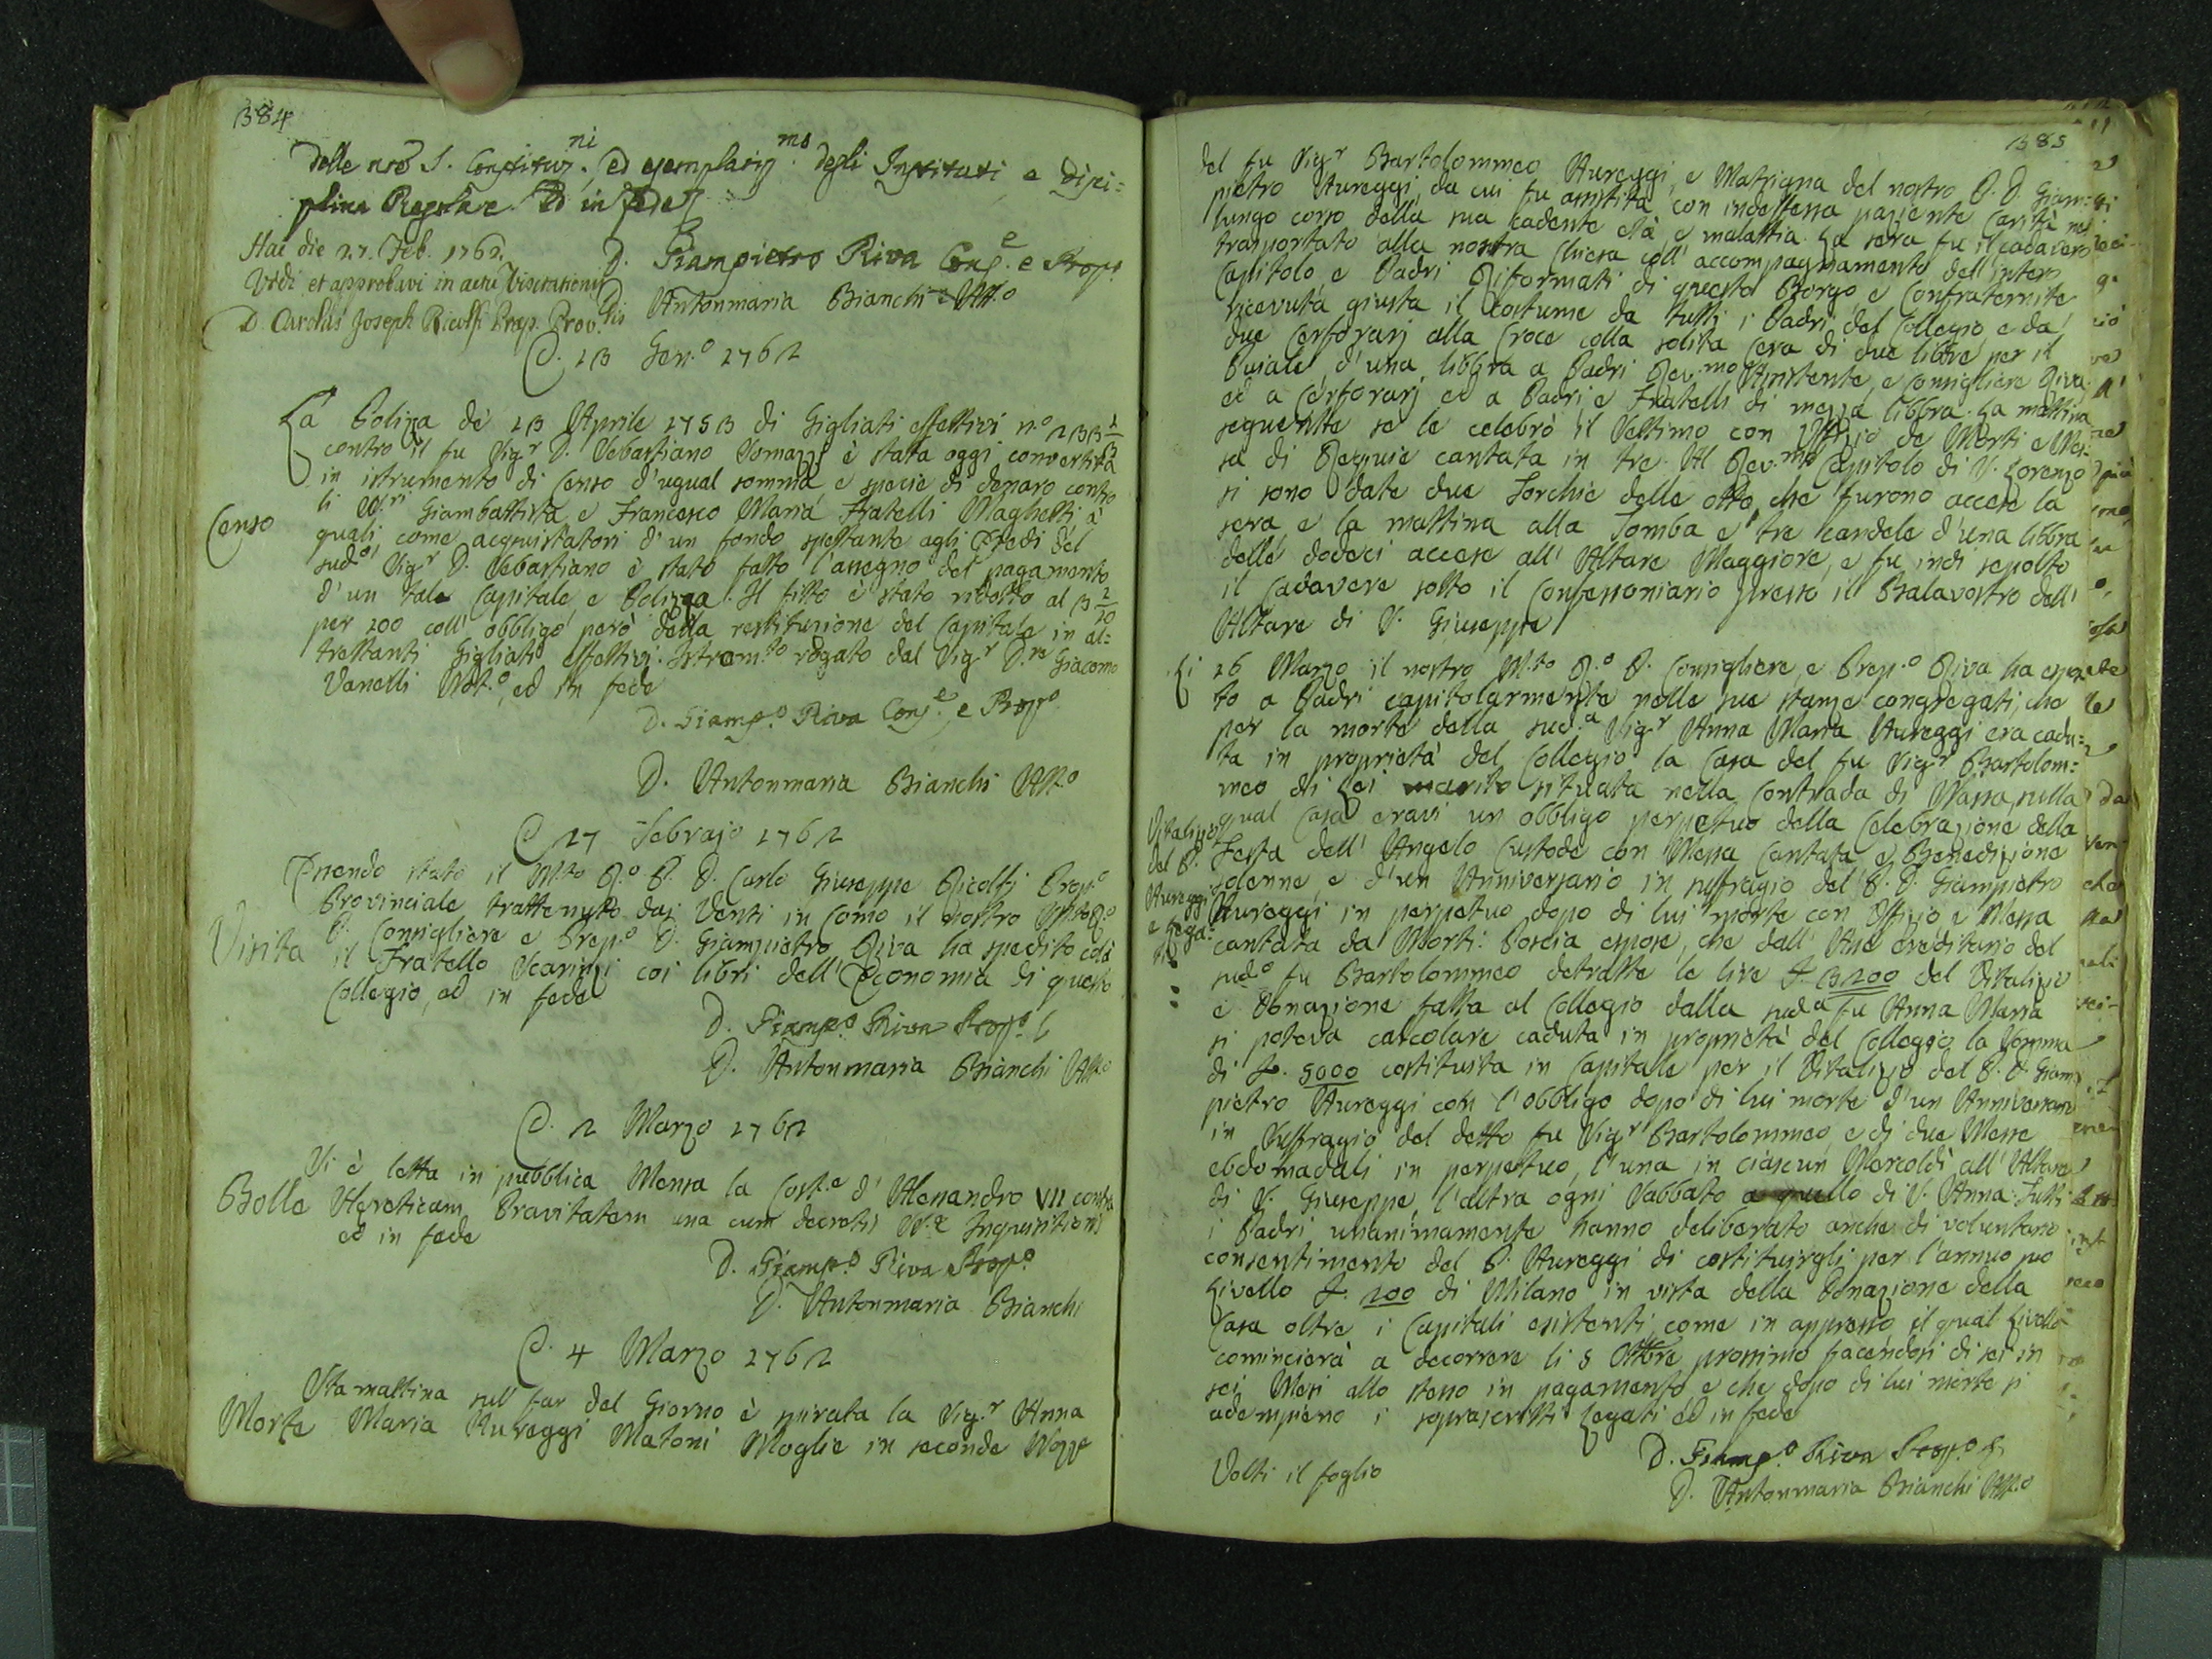 384
delle nrē S. Constituz.ni, ed esemplariss.mo degli Instituti e disci=
plina Regolare. Ed in fede
Hac die 27. Feb. 1762.
D. Giampietro Riva Cons.e e Prop.o
Vidi et approbavi in actu Visitationis
D. Antonmaria Bianchi Att.o
D. Carolus Joseph Ricolfi Præp. Prov.lis
A. 13 Gen.o 1762
La Polizza de 13 Aprile 1753 di Gigliati effettivi n.o 133 1/2
contro il fu Sig.r D. Sebastiano Somazzi è stata oggi convertita
in istrumento di Censo d'ugual somma e specie di denaro contro
li SS.ri Giambattista e Francesco Maria Fratelli Maghetti, a
Censo
quali, come acquistatori d'un fondo spettante agli Eredi del
sud.o Sig.r D. Sebastiano è stato fatto l'assegno del pagamento
d'un tale Capitale, e Polizza. Il fitto è stato ridotto al 3 1/10
per 100 coll' obbligo però della restituzione del Capitale in al=
trettanti Gigliati effettivi. Istrom.to rogato dal Sig.r D.re Giacomo
Vanelli Not.o, ed in fede
D. Giamp.o Riva Cons.e, e Prop.o
D. Antonmaria Bianchi Att.o
A 27 Febrajo 1762
Essendo stato il M.to R.o P. D. Carlo Giuseppe Ricolfi Prep.o
Provinciale trattenuto dai Venti in Como il nostro M.to R.o
P. Consigliere e Prep.o D. Giampietro Riva ha spedito colà
Visita
il Fratello Scarinzi coi libri dell' Economia di questo
Collegio, ed in fede
D. Giamp.o Riva Prop.o
D. Antonmaria Bianchi Att.o
A. 2 Marzo 1762
Si è letta in pubblica Mensa la Cost.e d' Alessandro VII contra
Bolle
Hæreticam Pravitatem una cum decretis S.æ Inquisitionis
ed in fede
D. Giamp.o Riva Prop.o
D. Antonmaria Bianchi
A. 4 Marzo 1762
Stamattina sull far del Giorno è spirata la Sig.r Anna
Morte
Maria Aureggi Matoni Moglie in seconde Nozze
385
del fu Sig.r Bartolommeo Aureggi, e Matrigna del nostro P. D. Giam=
pietro Aureggi, da cui fu assistita con indefessa paziente Carità nel
lungo corso della sua cadente età e malattia. La sera fu il cadavero
trasportato alla nostra Chiesa coll' accompagnamento dell' intero
Capitolo, e Padri Riformati di questo Borgo e Confraternite
ricevuta giusta il costume da tutti i Padri del Collegio, e da
due Cerforarj alla Croce colla solita Cera di due libbre per il
Pivale, d'una libbra a Padri Rev.mo Assistente, e Consigliere Riva
ed a Cerforarj ed a Padri, e Fratelli di mezza libbra. La mattina
seguente se le celebrò il Settimo con Uffizio de Morti e Mes=
sa di Requie cantata in tre. Al Rev.mo Capitolo di S. Lorenzo
si sono date due Torchie delle otto, che furono accese la
sera e la mattina alla Tomba e tre candele d'una libbra
delle dodeci accese all' Altare Maggiore, e fu indi sepolto
il cadavere sotto il Confessoniario presso il Balavostro dell'
Altare di S. Giuseppe
Li 26 Marzo il nostro M.to R.o P. Consigliere, e Prep.o Riva ha espos=
to a Padri capitolarmente nelle sue stanze congregati, che
per la morte della sud.a Sig.r Anna Maria Aureggi era cadu=
ta in proprietà del Collegio la Casa del fu Sig.r Bartolom=
meo di Lei marito situata nella Contrada di Nassa, sulla
qual Casa eravi un obbligo perpetuo della Celebrazione della
Vitalizio
del P.
Aureggi
e Lega=
ti
Festa dell' Angelo Custode con Messa Cantata e Benedizione
solenne, e d'un Anniversario in suffragio del P. D. Giampietro
Aureggi in perpetuo dopo di lui morte con Offizio e Messa
cantata da Morti: Poscia espose, che dall' Asse ereditario del
sud.o fu Bartolommeo detratte le lire L. 3200 del Vitalizio
e Donazione fatta al Collegio dalla sud.a fu Anna Maria
si poteva calcolare caduta in proprietà del Collegio la Somma
di L. 5000 costituita in Capitale per il Vitalizio del P. D. Giam
pietro Aureggi con l'obbligo dopo di lui morte d'un Anniversario
in Suffragio del detto fu Sig.r Bartolommeo, e di due Messe
ebdomadali in perpetuo, l'una in ciascun Mercoldì all' Altare
di S. Giuseppe, l'altra ogni Sabbato a quello di S. Anna: Tutti
i Padri unanimamente hanno deliberato anche di voluntario
consentimento del P. Aureggi di costituirgli per l'annuo suo
Livello L. 200 di Milano in vista della Donazione della
Casa oltre i Capitali esistenti, come in appresso, il qual Livello
comincierà a decorrere li 5 Ottbre prossimo facendosi di sei in
sei Mesi allo stesso in pagamento, e che dopo di lui morte si
adempiano i soprascritti Legati ed in fede
D. Giamp.o Riva Prop.o
D. Antonmaria Bianchi Att.o
Volti il foglio